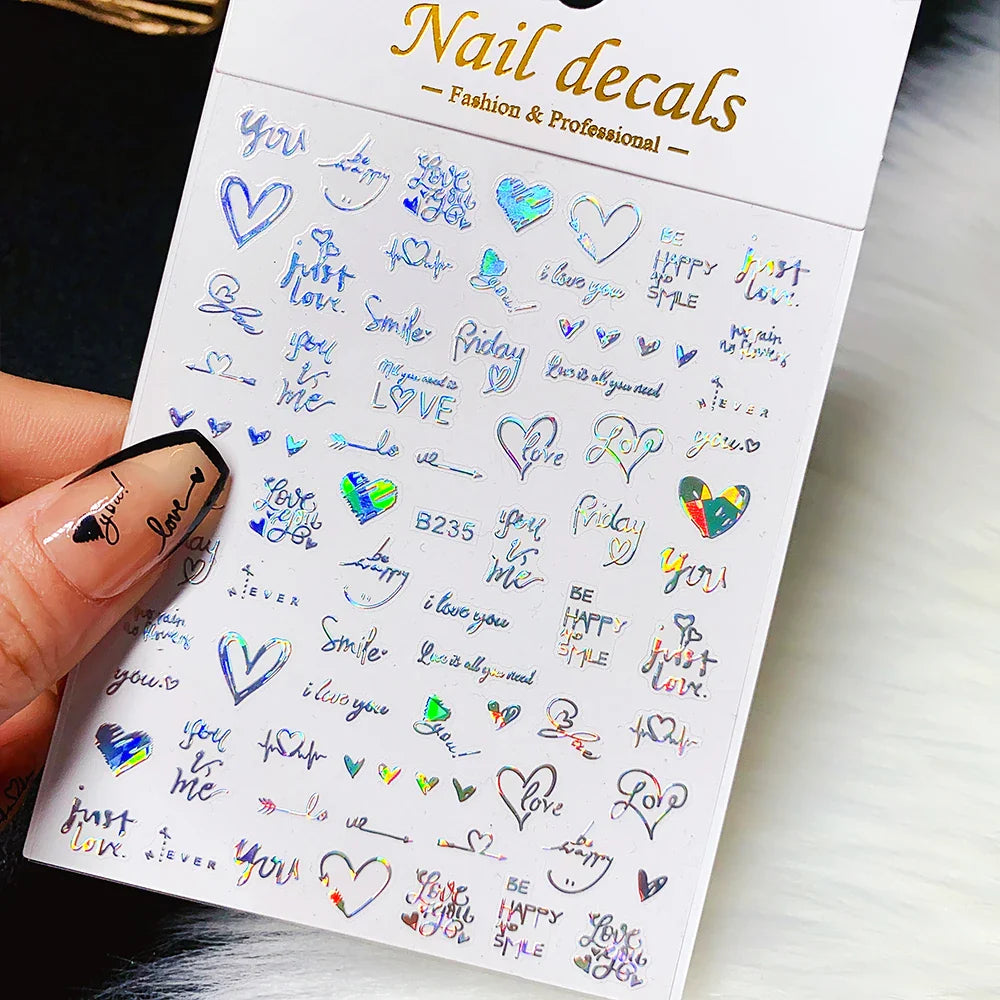 Nail decals
— Fashion & Professional —
you
be
happy
Love
you
BE
HAPPY
AND
SMILE
just
love.
just
love.
you!
i love you
Love
Smile
friday
no rain
no flowers
you
is
me
All you need is
LOVE
Love is all you need
NEVER
you.
lo
ve
love
Love
Love
you
B235
you
is
me
friday
you
you!
love
day
NEVER
be
happy
i love you
BE
HAPPY
AND
SMILE
just
love.
no rain
no flowers
Smile
Love is all you need
you.
i love you
you!
Love
you
is
me
love
Love
just
love.
lo
ve
be
happy
NEVER
you
Love
you
BE
HAPPY
AND
SMILE
Love
you